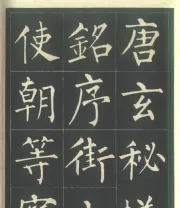 唐玄秘塔
銘序街
使朝等